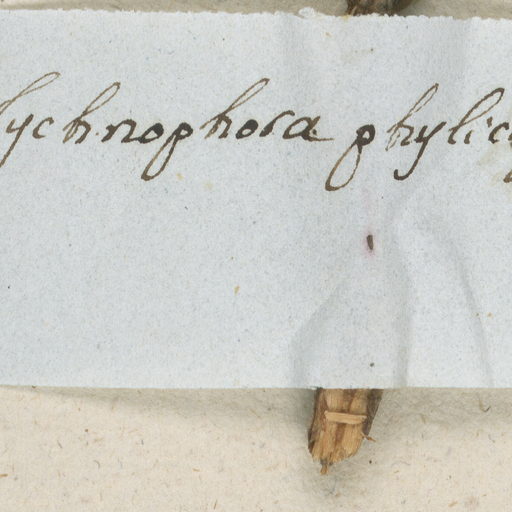 Lychnophora phylica